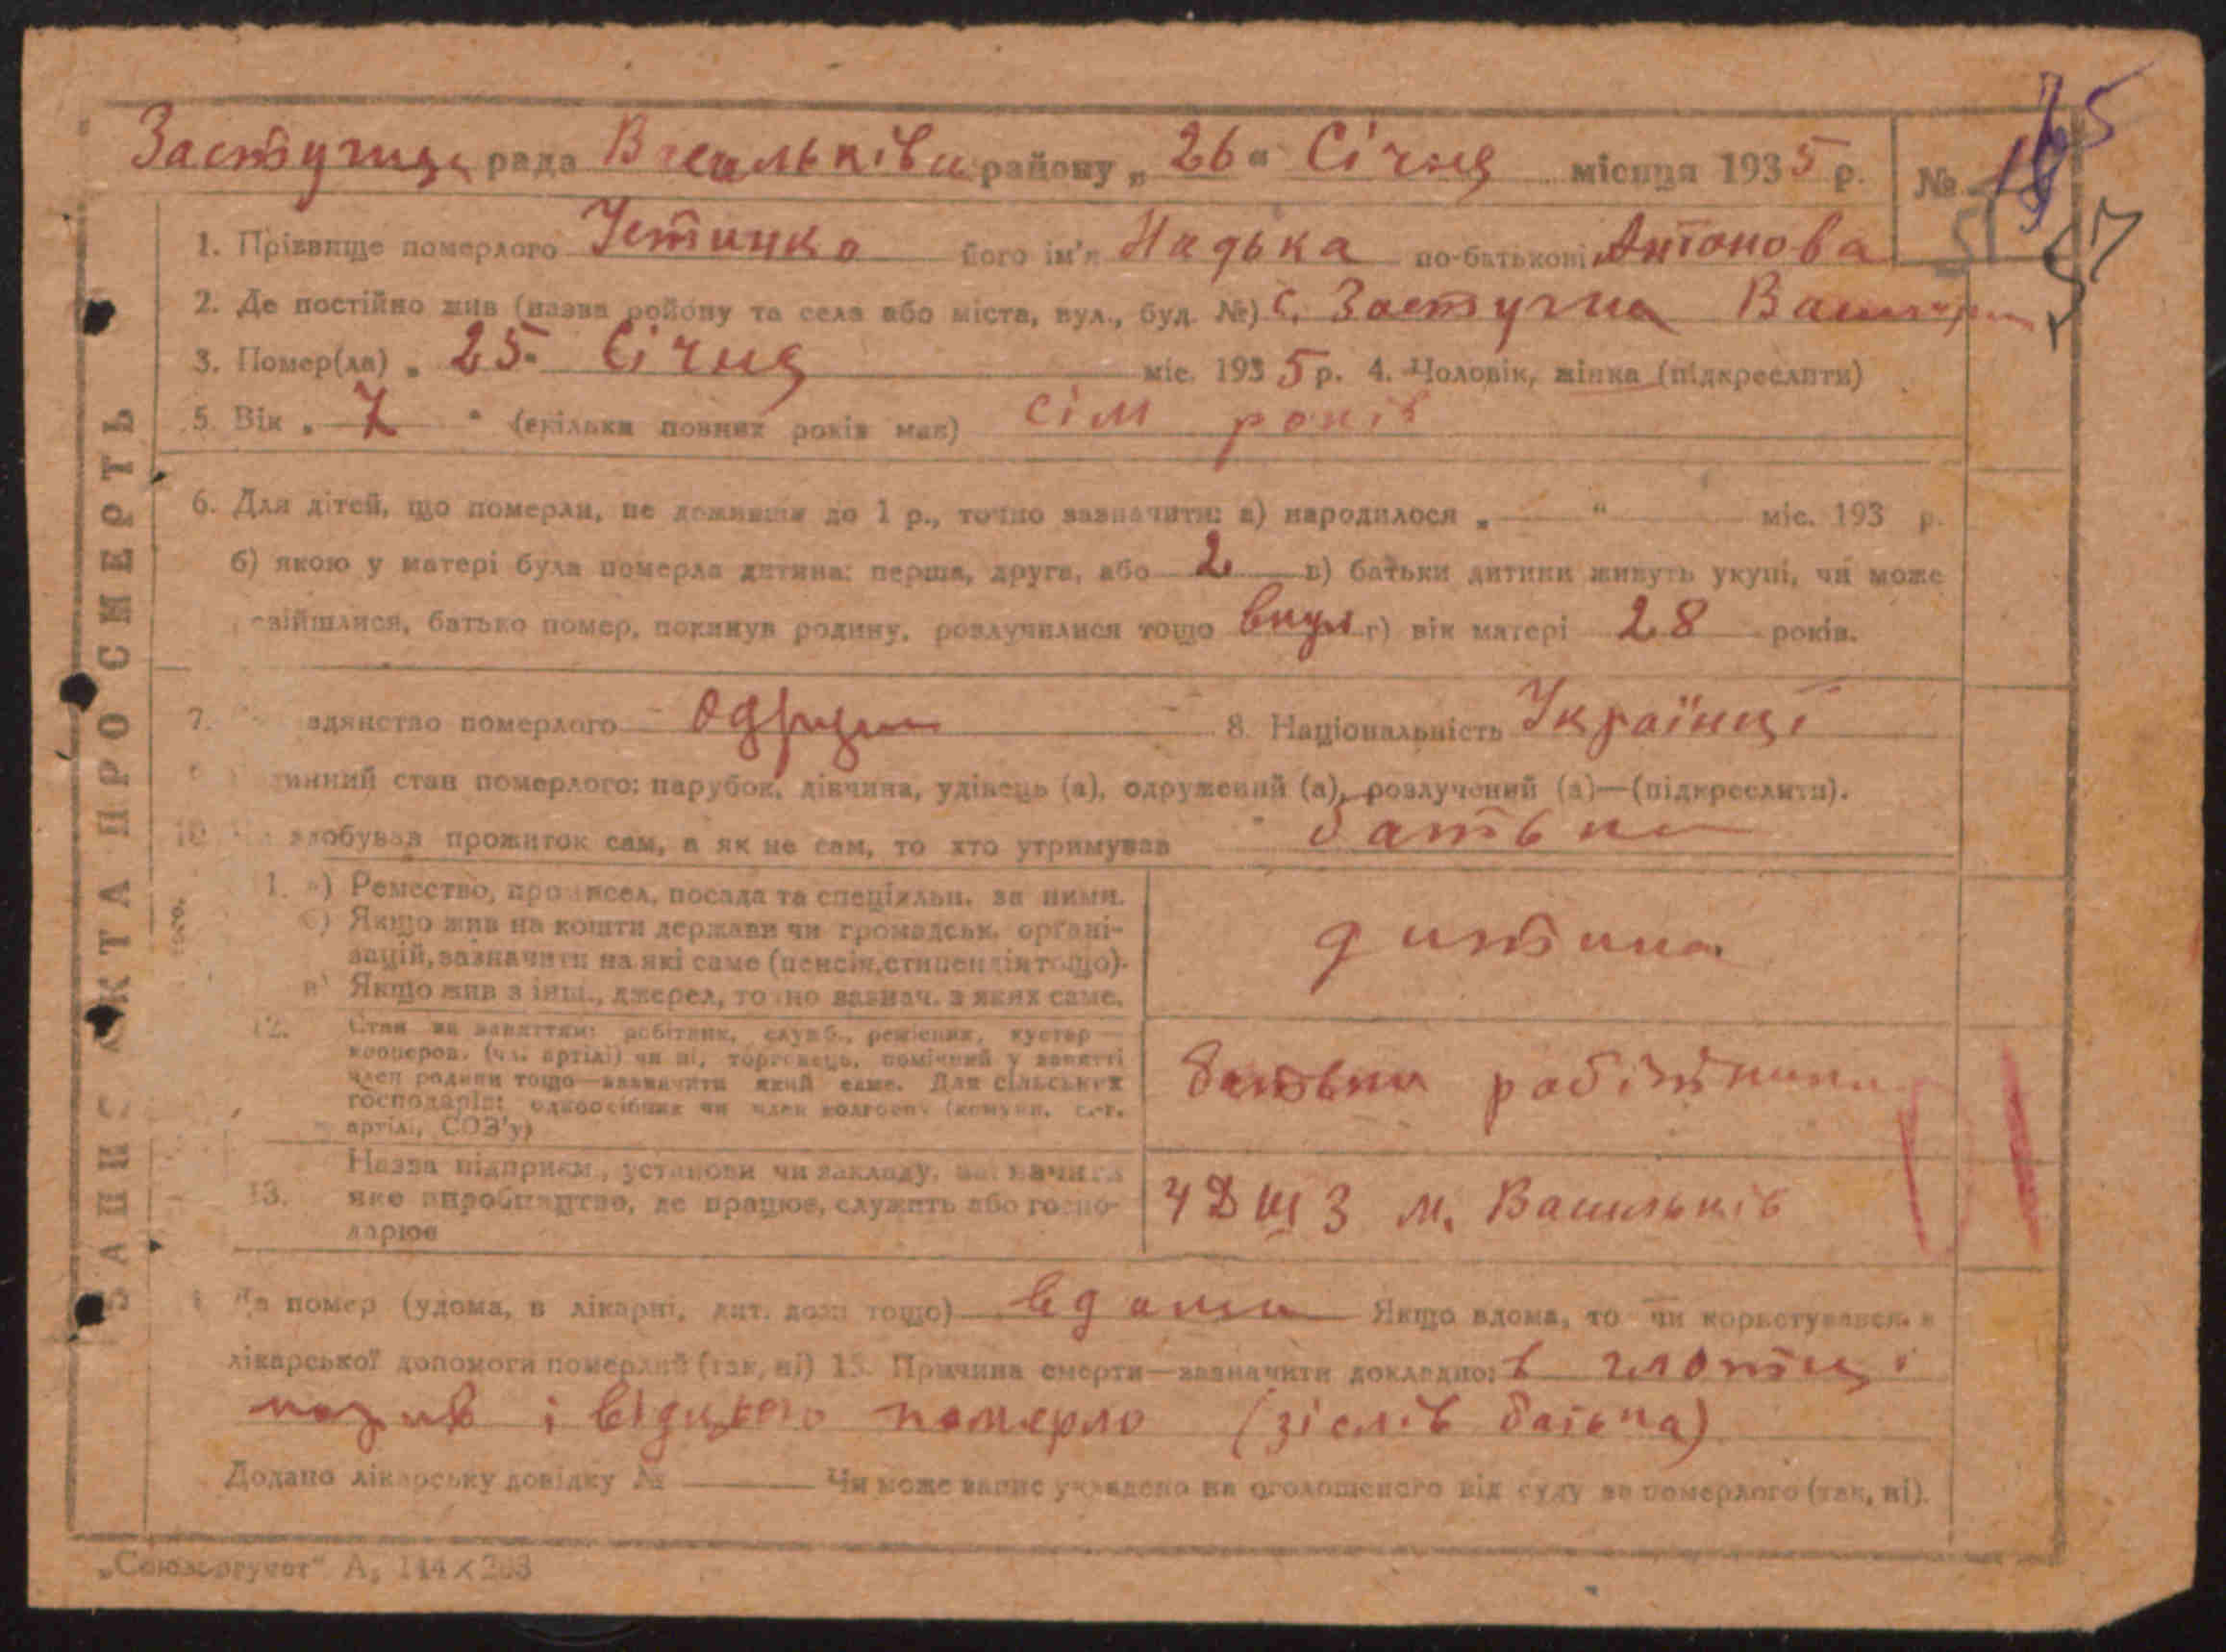 Застугна рада Васильків району „ 26 “ Січня місяця 1935 р. №
1. Прізвище померлого Устинко його ім'я Надька по-батькові Антонова
2. Де постійно жив (назва району та села або міста, вул., буд. №) с. Застугна
3. Помер(ла) „ 25 “ Січня міс. 1935 р. 4. Чоловік, жінка (підкреслити)
5. Вік „ 7 “ (скільки повних років мав) сім років
6. Для дітей, що померли, не доживши до 1 р., точно зазначити: а) народилося „ — “ — міс. 193 р.
б) якою у матері була померла дитина: перша, друга, або 2 в) батьки дитини живуть укупі, чи може
розійшлися, батько помер, покинув родину, розлучилися тощо вкупі г) вік матері 28 років.
7. адянство померлого 8. Національність Українці
инний стан померлого: парубок, дівчина, удівець (а), одружений (а), розлучений (а)—(підкреслити).
10 здобував прожиток сам, а як не сам, то хто утримував батьки
1. а) Ремество, промисел, посада та спеціяльн. за ними.
б) Якщо жив на кошти держави чи громадськ. органі-
зацій, зазначити на які саме (пенсія, стипендія тощо).
в) Якщо жив з інш., джерел, точно зазнач. з яких саме.
дитина
12. Стан за заняттям: робітник, служб., ремісник, кустар
кооперов. (чл. артілі) чи ні, торговець, помічний у занятті
член родини тощо—зазначити який саме. Для сільських
господарів: одноосібник чи член колгоспу (комуни, с.-г.
артілі, СОЗ'у)
батьки робітники
13. Назва підприєм., установи чи закладу, зазначити
яке виробництво, де працює, служить або госпо-
дарює
ЧДШЗ м. Васильків
Де помер (удома, в лікарні, дит. домі тощо) вдома Якщо вдома, то чи користувався з
лікарської допомоги померлий (так, ні) 15. Причина смерти—зазначити докладно: в глотці
і відцього померло (зіслів батька)
Додано лікарську довідку № — Чи може запис укладено на оголошеного від суду за померлого (так, ні).
ЗАПИС АКТА ПРО СМЕРТЬ
„Союзоргучет“ А₅ 144×203